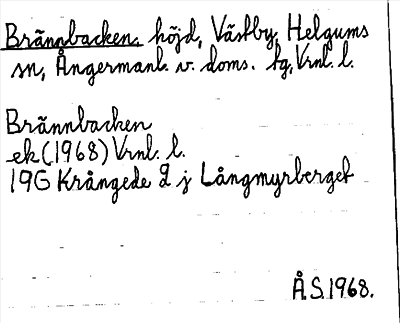 Brännbacken, höjd, Västby, Helgums
sn, Ångermanl. v. doms. fg, Vrnl. l.
Brännbacken
ek (1968) Vrnl. l.
19G Krångede 2 j Långmyrberget
Å.S. 1968.